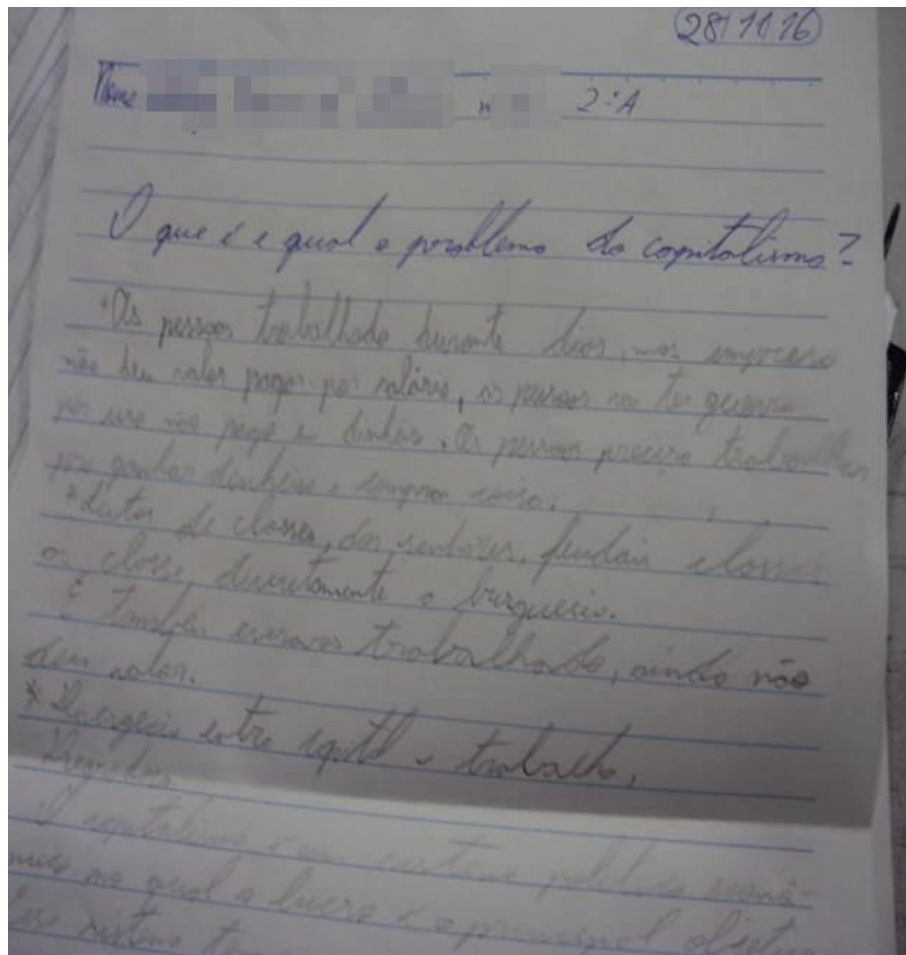 28/11/16
Nome n 2ºA
O que é e qual o problema do capitalismo?
*As pessoas trabalhado durante dias, mas empresa
não deu valor pagar por salário, as pessoas
por isso não pago e dinheiro. As pessoas precisa trabalhar
pra ganhar dinheiro e comprar coisa.
*Lutas de classes, dos senhores, feudais classes
a classe, a burguesia.
E também escravos trabalhado, ainda não
deu valor.
* Divergecia entre capital e trabalho,
O capitalismo é um sistema político econô-
mico no qual o lucro é o principal objetivo
Esse sistema